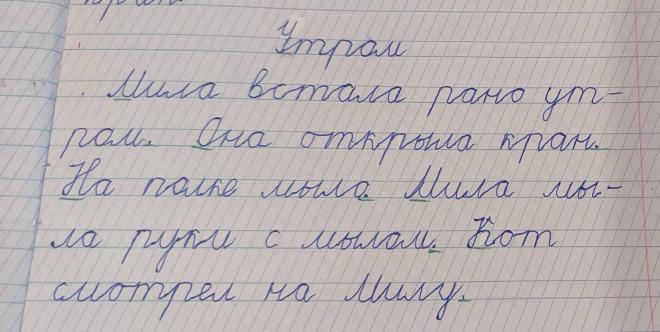 Утром
Мила встала рано ут-
ром. Она открыла кран.
На полке мыло. Мила мы-
ла руки с мылом. Кот
смотрел на Милу.